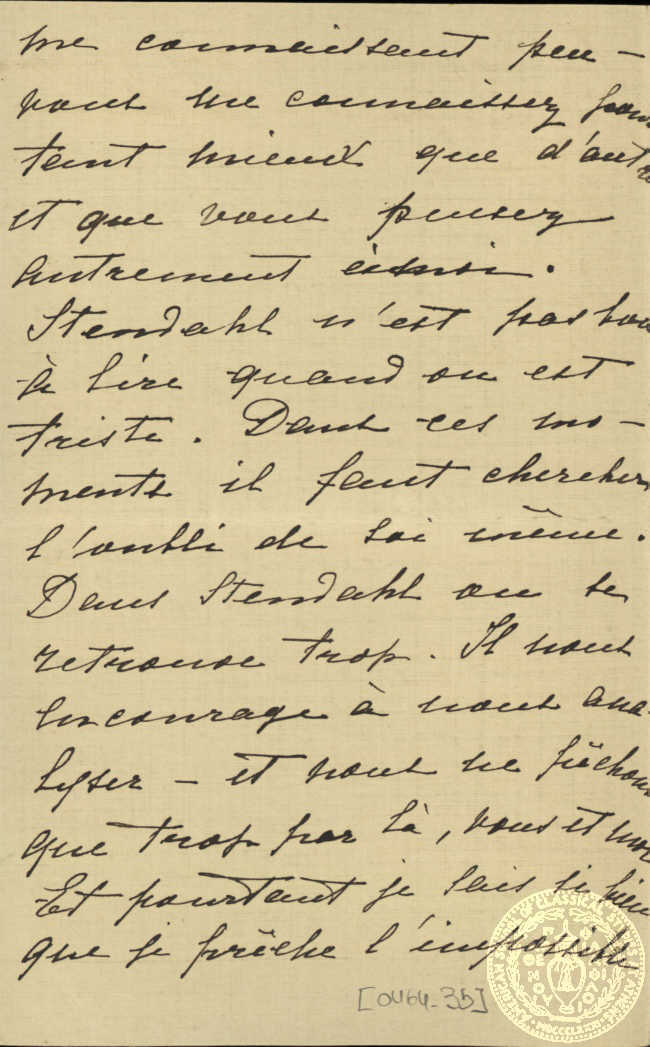 me connaissant peu –
vous me connaissez pour
tant mieux que d'autres
et que vous pensez
autrement
Stendahl n'est pas bon
à lire quand on est
triste. Dans ces mo-
ments il faut chercher
l'oubli de soi même.
Dans Stendahl on se
retrouve trop. Il nous
encourage à nous ana-
lyser – et nous ne pêchons
que trop par là, vous et moi
Et pourtant je sais si bien
que je prêche l'impossible
[0464-35]
AMERICAN SCHOOL OF CLASSICAL STUDIES AT ATHENS
MDCCCLXXXI